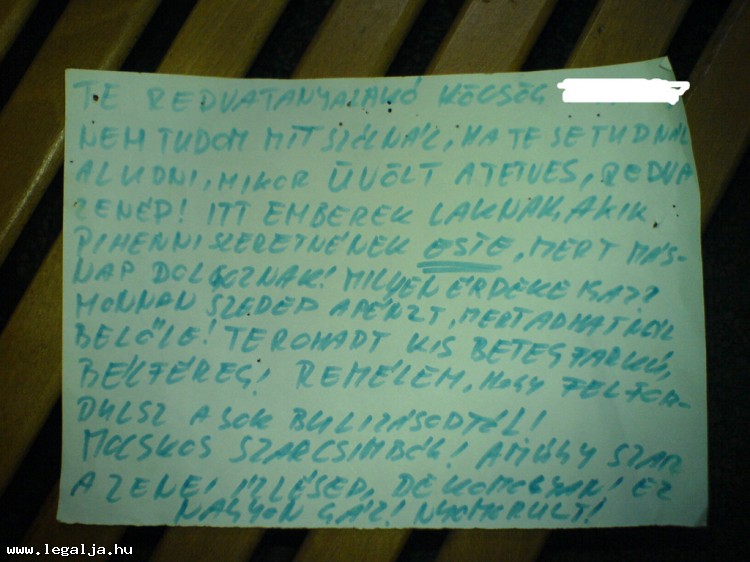 TE REDVATANYALAKÓ KÖCSÖG
NEM TUDOM MIT SZÓLNÁL, HA TE SE TUDNÁL
ALUDNI, MIKOR ÜVÖLT A TETVES, REDVA
ZENÉD! ITT EMBEREK LAKNAK, AKIK
PIHENNI SZERETNÉNEK ESTE, MERT MÁS-
NAP DOLGOZNAK! MILYEN ÉRDEKE
HONNAN SZEDED A PÉNZT, MERT ADHATNÁL
BELŐLE! TE ROHADT KIS BETEGFARKÚ,
BÉLFÉREG! REMÉLEM, HOGY FELFOR-
DULSZ A SOK BULIZÁSODTÓL!
MOCSKOS SZARCSIMBÓK! AMÚGY SZAR
A ZENEI IZLÉSED, DE KOMOLYAN! EZ
NAGYON GÁZ! NYOMORULT!
www.legalja.hu